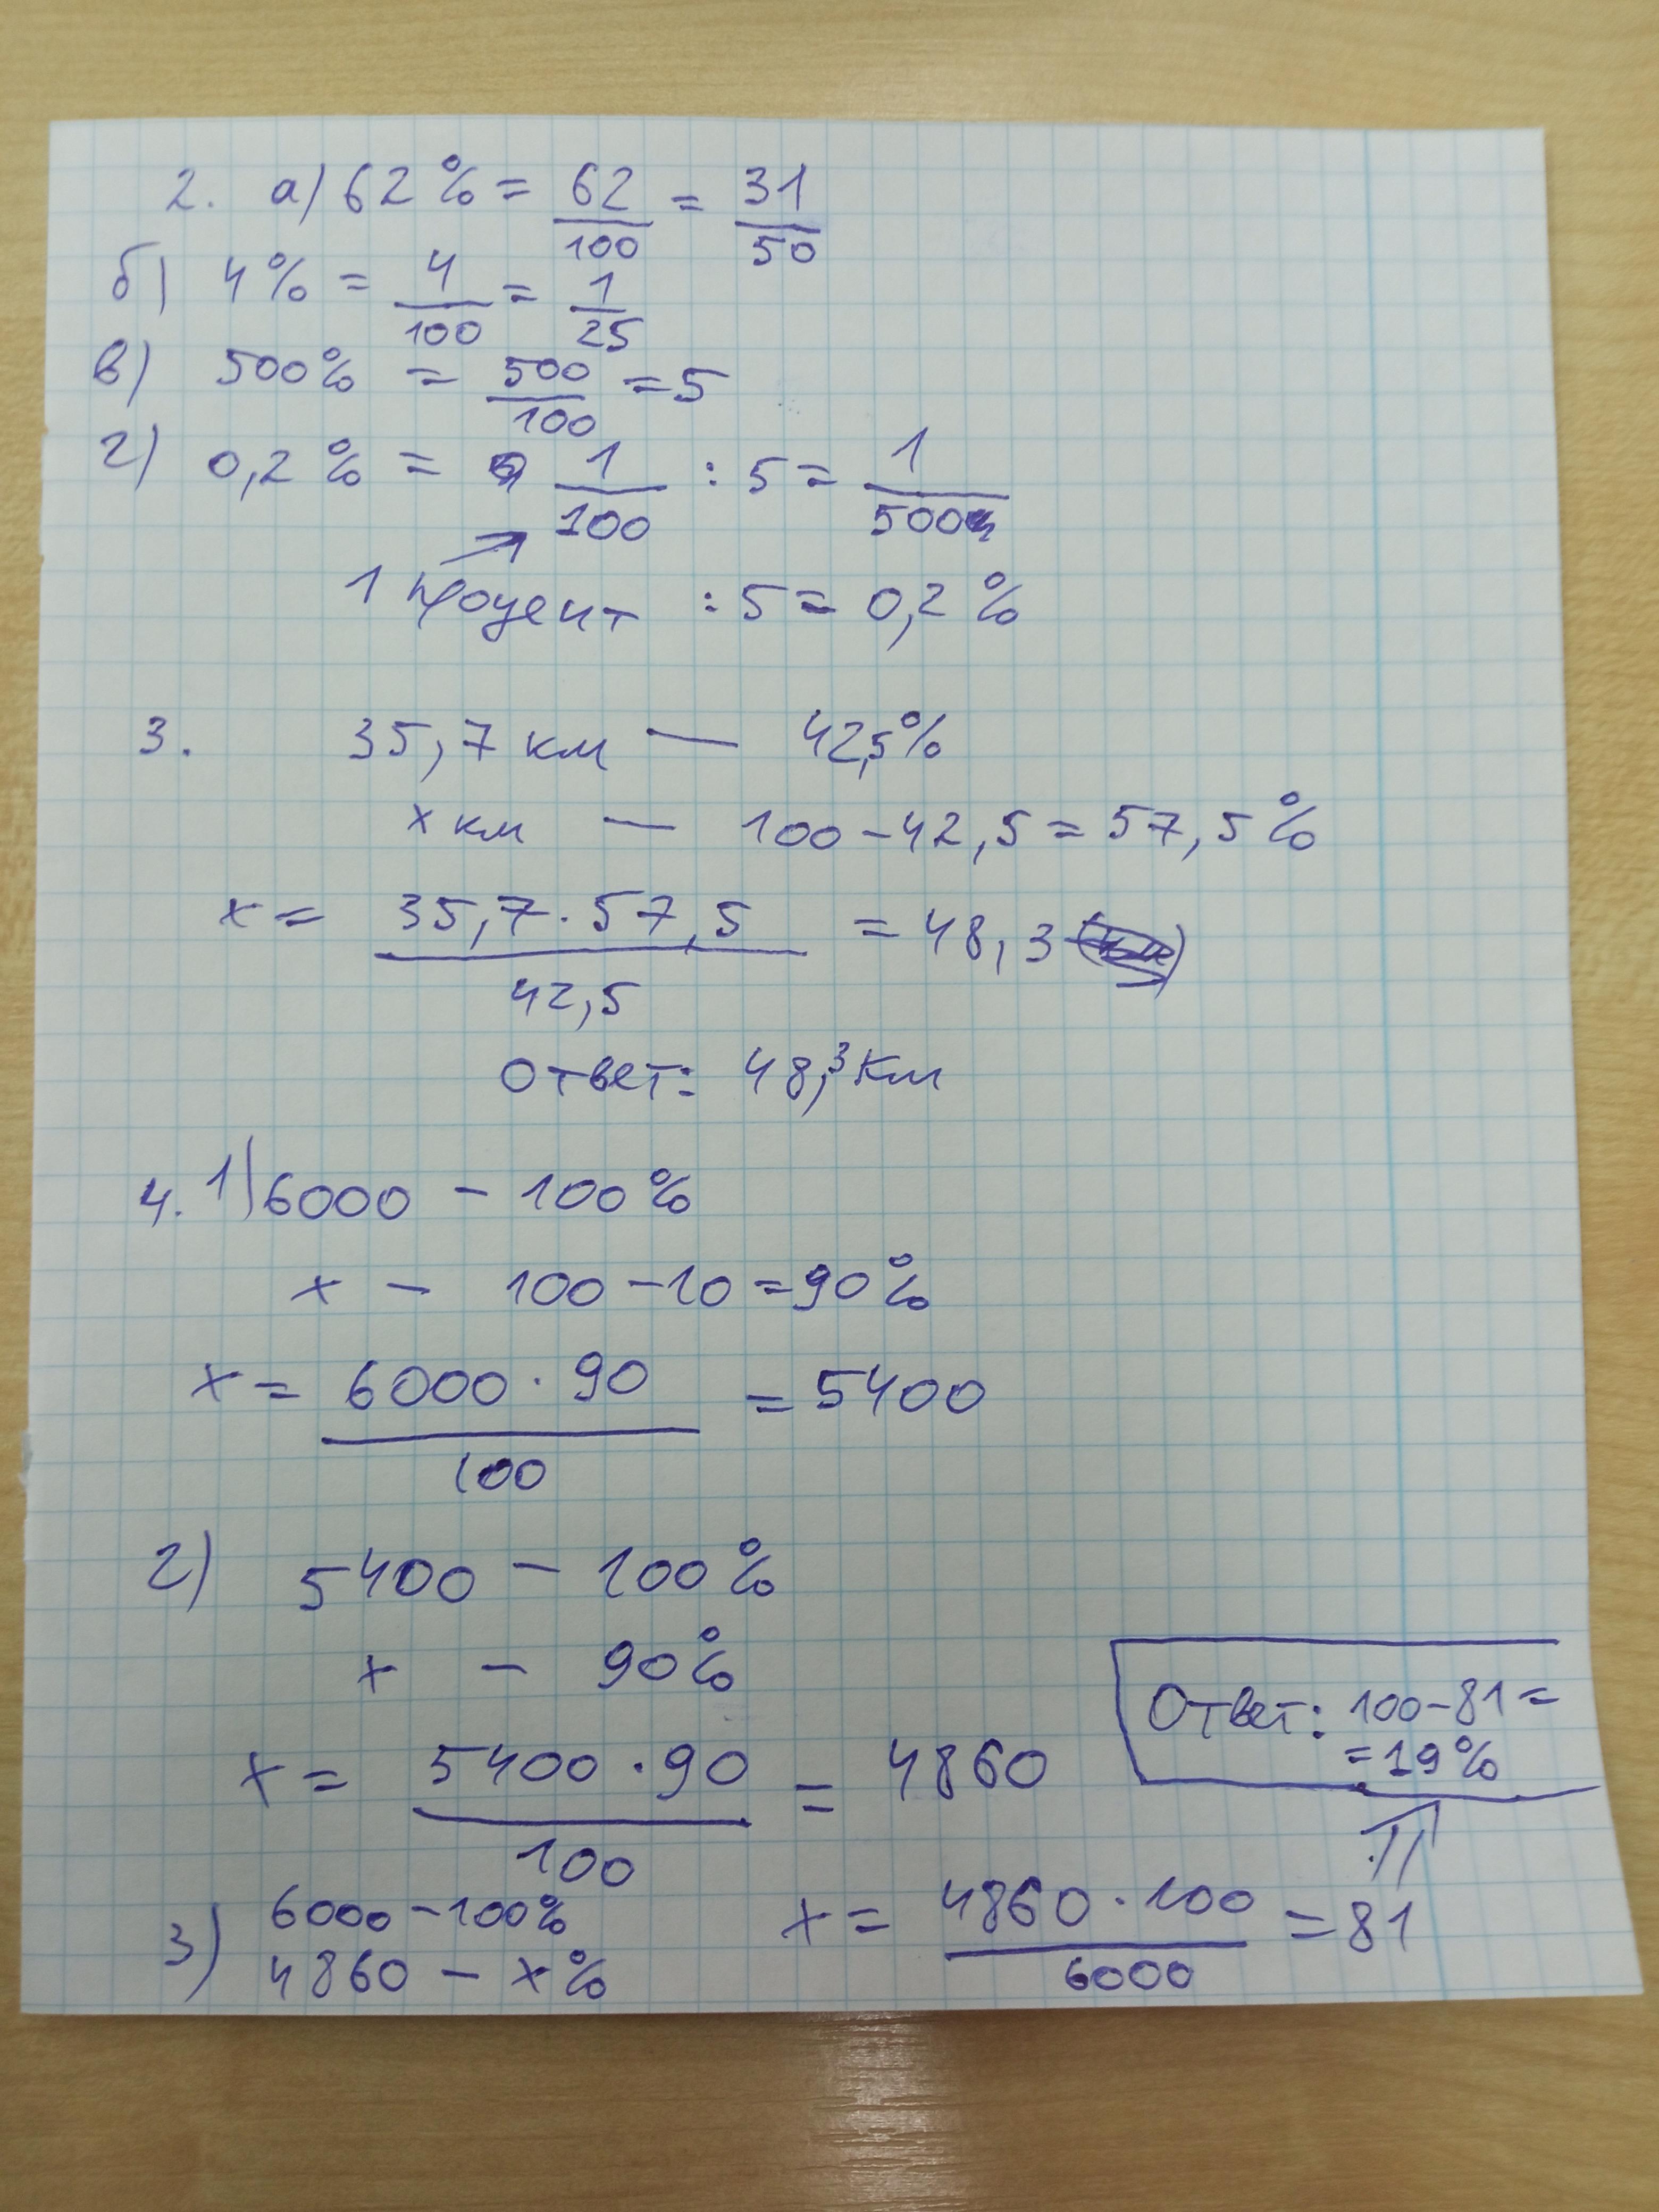 2. а) 62% = 62/100 = 31/50
б) 4% = 4/100 = 1/25
в) 500% = 500/100 = 5
г) 0,2% = 1/100 : 5 = 1/500
1 процент : 5 = 0,2%
3. 35,7 км — 42,5%
x км — 100 - 42,5 = 57,5%
x = 35,7 · 57,5 / 42,5 = 48,3
Ответ: 48,3 км
4. 1) 6000 - 100%
x - 100 - 10 = 90%
x = 6000 · 90 / 100 = 5400
2) 5400 - 100%
x - 90%
x = 5400 · 90 / 100 = 4860
Ответ: 100 - 81 =
= 19%
3) 6000 - 100%
4860 - x%
x = 4860 · 100 / 6000 = 81